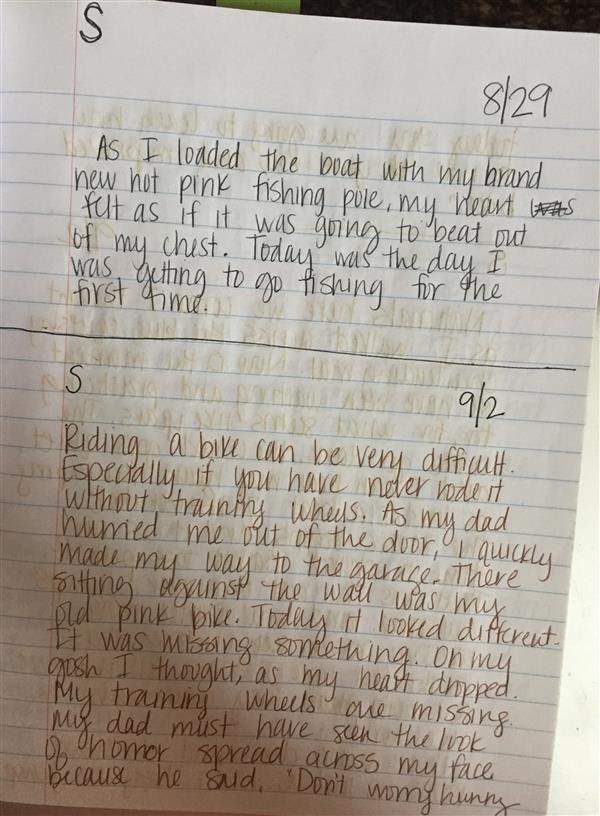 S
8/29
As I loaded the boat with my brand
new hot pink fishing pole, my heart
felt as if it was going to beat out
of my chest. Today was the day I
was getting to go fishing for the
first time.
S
9/2
Riding a bike can be very difficult.
Especially if you have never rode it
without training wheels. As my dad
hurried me out of the door, I quickly
made my way to the garage. There
sitting against the wall was my
old pink bike. Today it looked different.
It was missing something. Oh my
gosh I thought, as my heart dropped.
My training wheels are missing.
My dad must have seen the look
of horror spread across my face
because he said, "Don't worry hunny